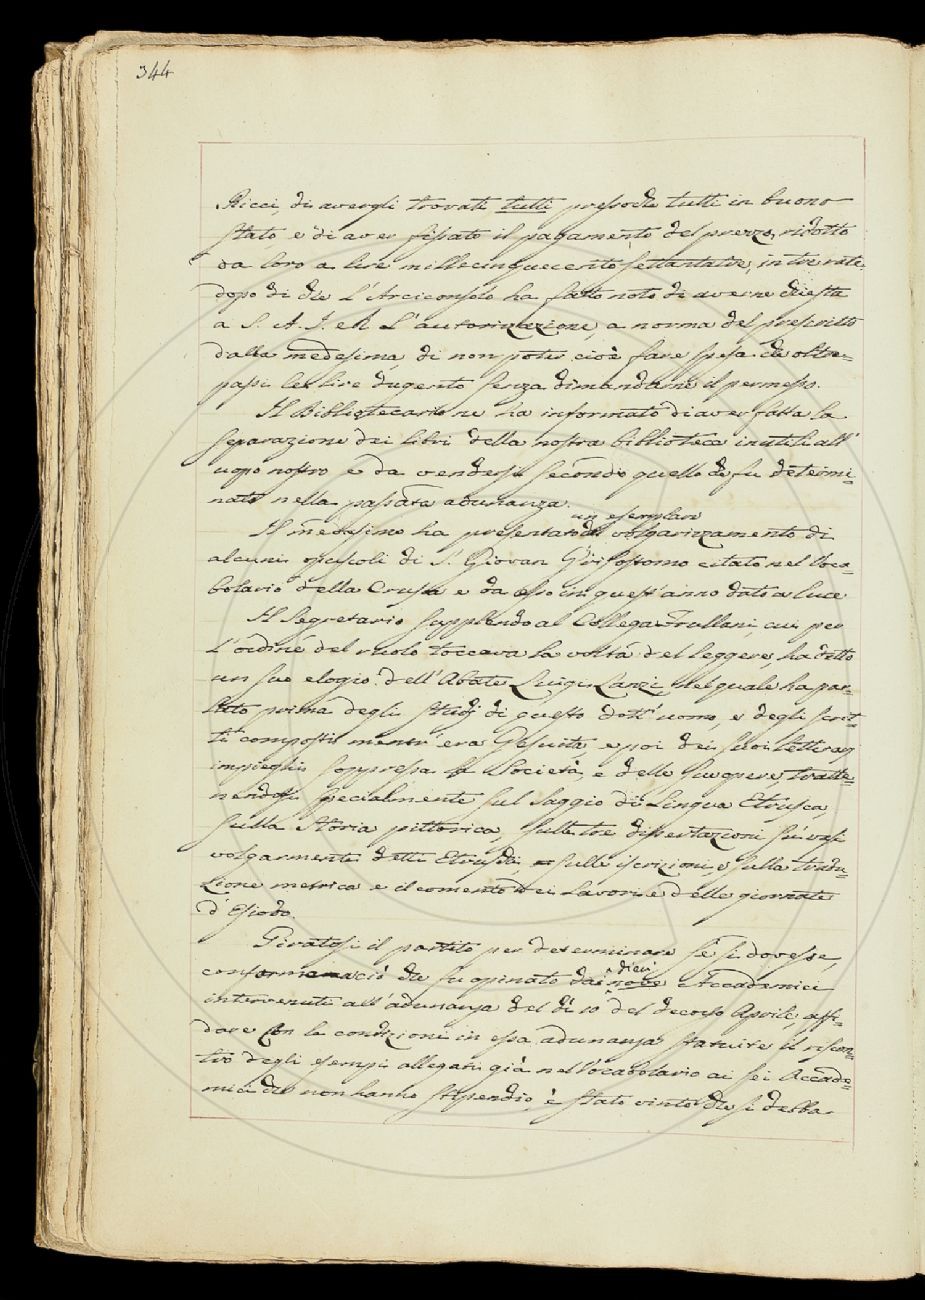 344
Ricci, di avergli trovati tutti pressochè tutti in buono
stato, e di aver fissato il pagamento del prezzo, ridotto
da loro a lire millecinquecento settantatre, in tre rate,
dopo di che l'Arciconsolo ha fatto noto di averne chiesta
a S. A. I. e R. l'autorizzazione, a norma del prescritto
dalla medesima, di non poter cioè fare spesa che oltre=
passi le lire dugento senza dimandarne il permesso.
Il Bibliotecario ne ha informato di aver fatta la
separazione dei libri della nostra biblioteca inutili all'
uopo nostro e da vendersi secondo quello che fu determi=
nato nella passata adunanza.
un esemplare
Il medesimo ha presentato del volgarizzamento di
alcuni opuscoli di S. Giovan Grisostomo citato nel Voca=
bolario della Crusca e da esso in quest'anno dato a luce
Il Segretario supplendo al Collega Frullani, cui per
l'ordine del ruolo toccava la volta del leggere, ha detto
un suo elogio dell'Abate Luigi Lanzi, nel quale ha par=
lato prima degli studj di questo dott'uomo, e degli scrit=
ti composti mentr'era Gesuita, e poi dei suoi letterarj
impieghi soppressa la Società, e delle sue opere, tratte=
nendosi specialmente sul Saggio di Lingua Etrusca,
sulla Storia pittorica, sulle tre dissertazioni su' vasi
volgarmente detti Etruschi, sulle iscrizioni, e sulla tradu=
zione metrica e il comento dei Lavori e delle giornate
d'Esiodo.
Giratosi il partito per determinare se si dovesse,
dieci
conforme a ciò che fu opinato dai nove Accademici
intervenuti all'adunanza del dì 10 del decorso Aprile, affi=
dare con le condizioni in essa adunanza statuite il riscon=
tro degli esempi allegati già nel Vocabolario ai sei Accade=
mici che non hanno stipendio, è stato vinto che si debba